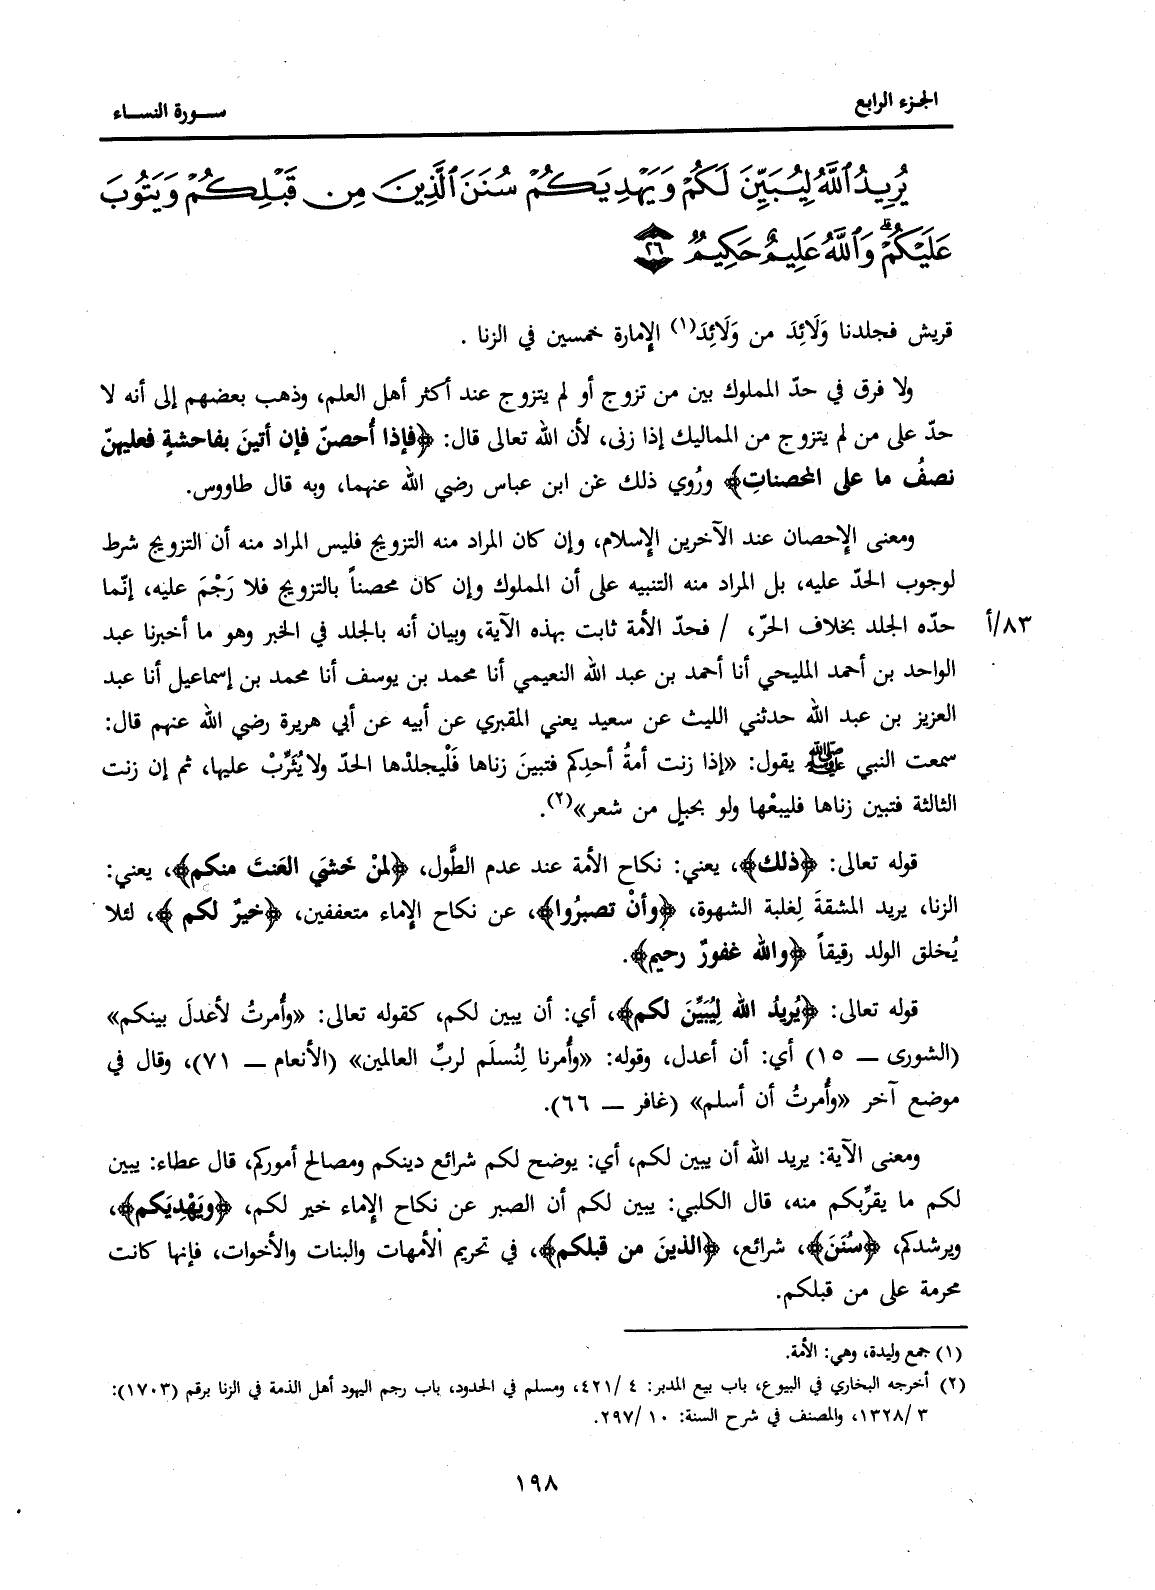 الجزء الرابع
سورة النساء
يُرِيدُ ٱللَّهُ لِيُبَيِّنَ لَكُمْ وَيَهْدِيَكُمْ سُنَنَ ٱلَّذِينَ مِن قَبْلِكُمْ وَيَتُوبَ
عَلَيْكُمْ ۗ وَٱللَّهُ عَلِيمٌ حَكِيمٌ ٢٦
قريش فجلدنا وَلَائِدَ من وَلَائِدَ(١) الإمارة خمسين في الزنا .
ولا فرق في حدّ المملوك بين من تزوج أو لم يتزوج عند أكثر أهل العلم، وذهب بعضهم إلى أنه لا
حدّ على من لم يتزوج من المماليك إذا زنى، لأن الله تعالى قال: ﴿فإذا أُحصنّ فإن أتينَ بفاحشةٍ فعليهنّ
نصفُ ما على المحصناتِ﴾ ورُوي ذلك عن ابن عباس رضي الله عنهما، وبه قال طاووس.
ومعنى الإحصان عند الآخرين الإسلام، وإن كان المراد منه التزويج فليس المراد منه أن التزويج شرط
لوجوب الحدّ عليه، بل المراد منه التنبيه على أن المملوك وإن كان محصناً بالتزويج فلا رَجْمَ عليه، إنّما
حدّه الجلد بخلاف الحرّ، / فحدّ الأمة ثابت بهذه الآية، وبيان أنه بالجلد في الخبر وهو ما أخبرنا عبد
٨٣/أ
الواحد بن أحمد المليحي أنا أحمد بن عبد الله النعيمي أنا محمد بن يوسف أنا محمد بن إسماعيل أنا عبد
العزيز بن عبد الله حدثني الليث عن سعيد يعني المقبري عن أبيه عن أبي هريرة رضي الله عنهم قال:
سمعت النبي ﷺ يقول: «إذا زنت أمةُ أحدِكم فتبينَ زناها فَلْيجلدْها الحدّ ولا يُثَرِّبْ عليها، ثم إن زنت
الثالثة فتبين زناها فليبعْها ولو بحبلٍ من شعر»(٢).
قوله تعالى: ﴿ذلك﴾، يعني: نكاح الأمة عند عدم الطَّول، ﴿لمنْ خَشيَ العَنتَ منكم﴾، يعني:
الزنا، يريد المشقةَ لِغلبة الشهوة، ﴿وأنْ تصبرُوا﴾، عن نكاح الإماء متعففين، ﴿خيرٌ لكم ﴾، لئلا
يُخلق الولد رقيقاً ﴿والله غفورٌ رحيم﴾.
قوله تعالى: ﴿يُريدُ الله لِيُبَيِّنَ لكم﴾، أي: أن يبين لكم، كقوله تعالى: «وأُمرتُ لأعدلَ بينكم»
(الشورى ــ ١٥) أي: أن أعدل، وقوله: «وأُمرنا لِنُسلَم لربِّ العالمين» (الأنعام ــ ٧١)، وقال في
موضع آخر «وأُمرتُ أن أسلم» (غافر ــ ٦٦).
ومعنى الآية: يريد الله أن يبين لكم، أي: يوضح لكم شرائع دينكم ومصالح أموركم، قال عطاء: يبين
لكم ما يقرِّبكم منه، قال الكلبي: يبين لكم أن الصبر عن نكاح الإماء خير لكم، ﴿ويَهْدِيَكم﴾،
ويرشدكم، ﴿سُنَنَ﴾، شرائع، ﴿الذينَ من قبلكم﴾، في تحريم الأمهات والبنات والأخوات، فإنها كانت
محرمة على من قبلكم.
(١) جمع وليدة، وهي: الأمة.
(٢) أخرجه البخاري في البيوع، باب بيع المدبر: ٤ /٤٢١، ومسلم في الحدود، باب رجم اليهود أهل الذمة في الزنا برقم (١٧٠٣):
٣ /١٣٢٨، والمصنف في شرح السنة: ١٠ /٢٩٧.
١٩٨